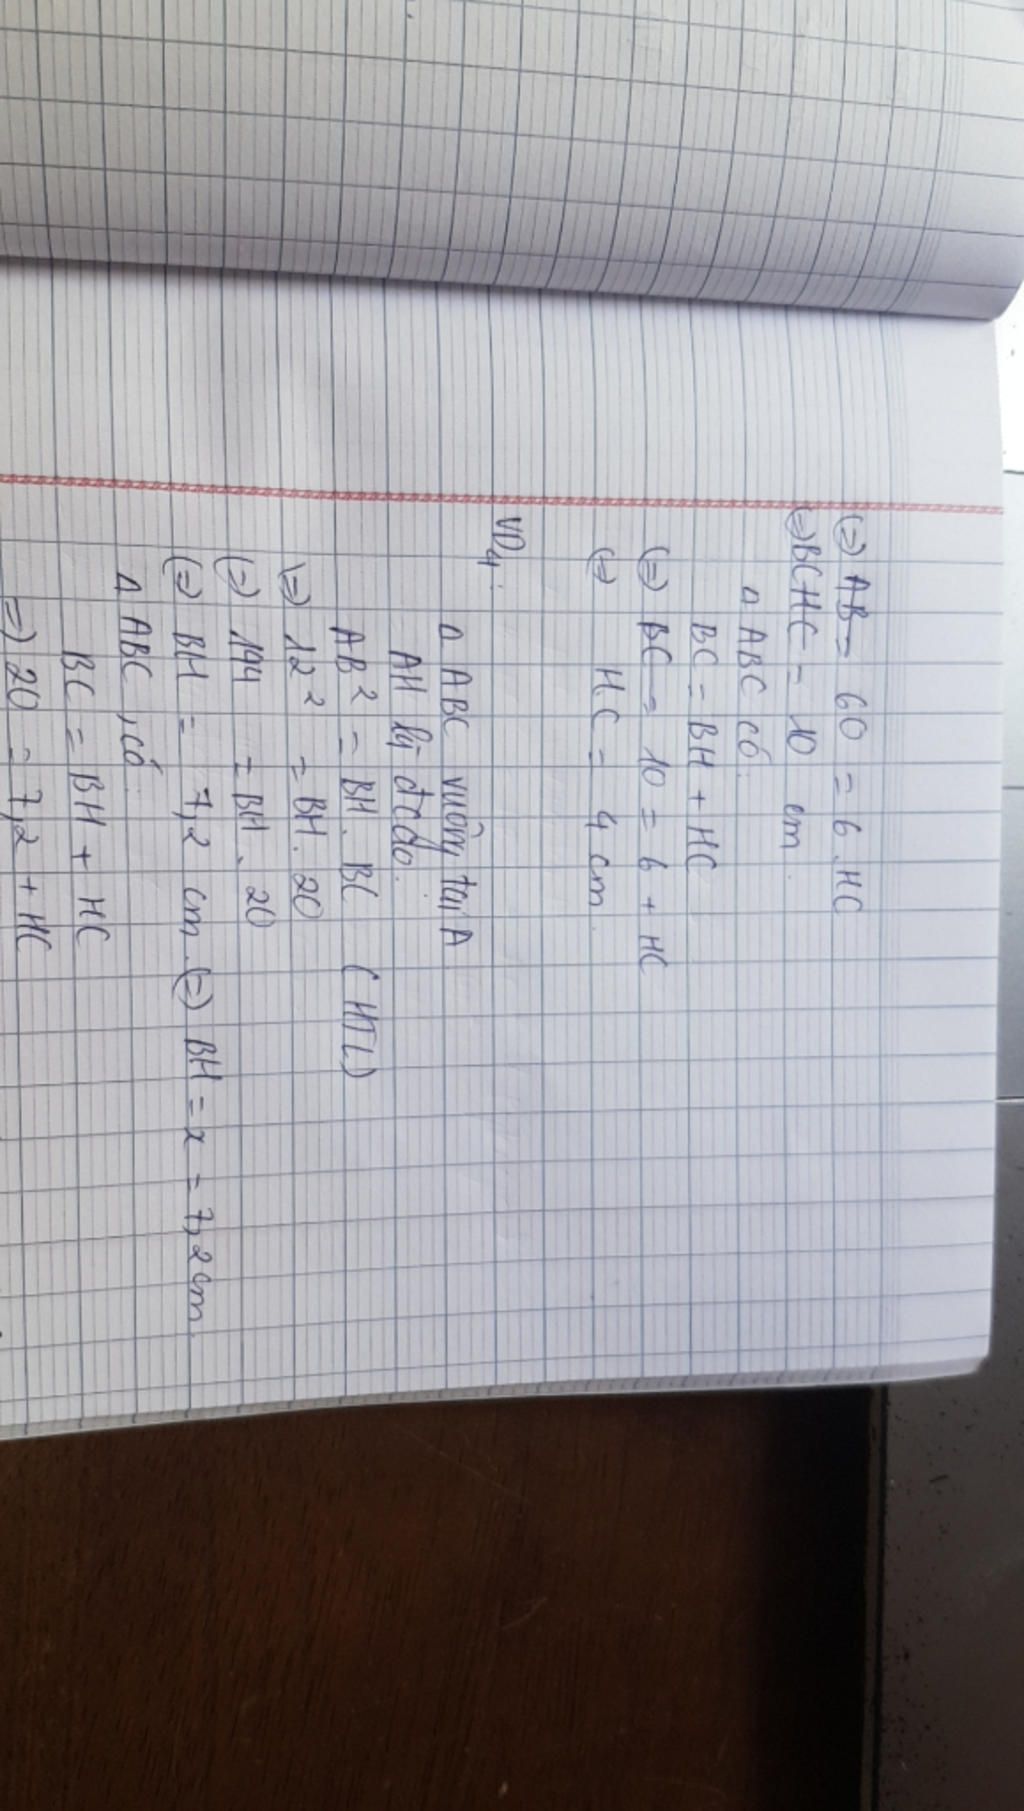 (=) AB = 60 = 6 . HC
(=) BC HC = 10 cm.
Δ ABC có:
BC = BH + HC
(=) BC = 10 = 6 + HC
(=) HC = 4 cm.
VD4:
Δ ABC vuông tại A
AH là đcao.
AB² = BH. BC (HTL)
(=) 12² = BH. 20
(=) 144 = BH. 20
(=) BH = 7,2 cm. (=) BH = x = 7,2 cm.
Δ ABC, có:
BC = BH + HC
=) 20 = 7,2 + HC